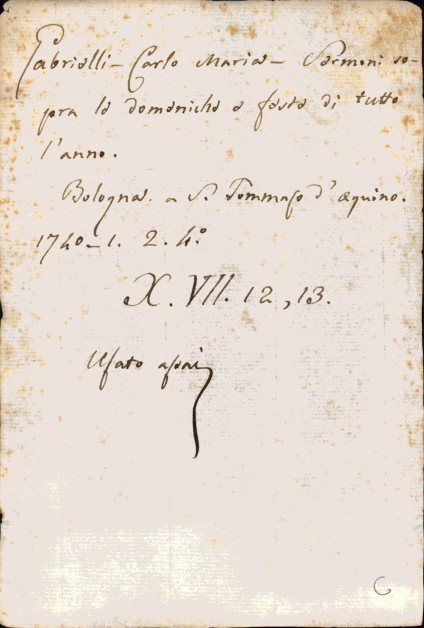 Gabrielli - Carlo Maria - Sermoni so-
pra le domeniche e feste di tutto
l'anno.
Bologna. a S. Tommaso d'aquino.
1740-1. 2. 4.º
X. VII. 12, 13.
Usato assai
G